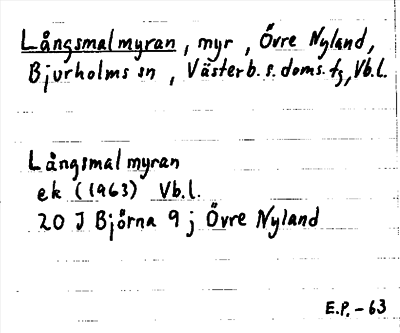 Långsmalmyran, myr, Övre Nyland,
Bjurholms sn, Västerb. s. doms. tg, Vb.l.
Långsmalmyran
ek (1963) Vb.l.
20 J Björna 9 j Övre Nyland
E.P. - 63